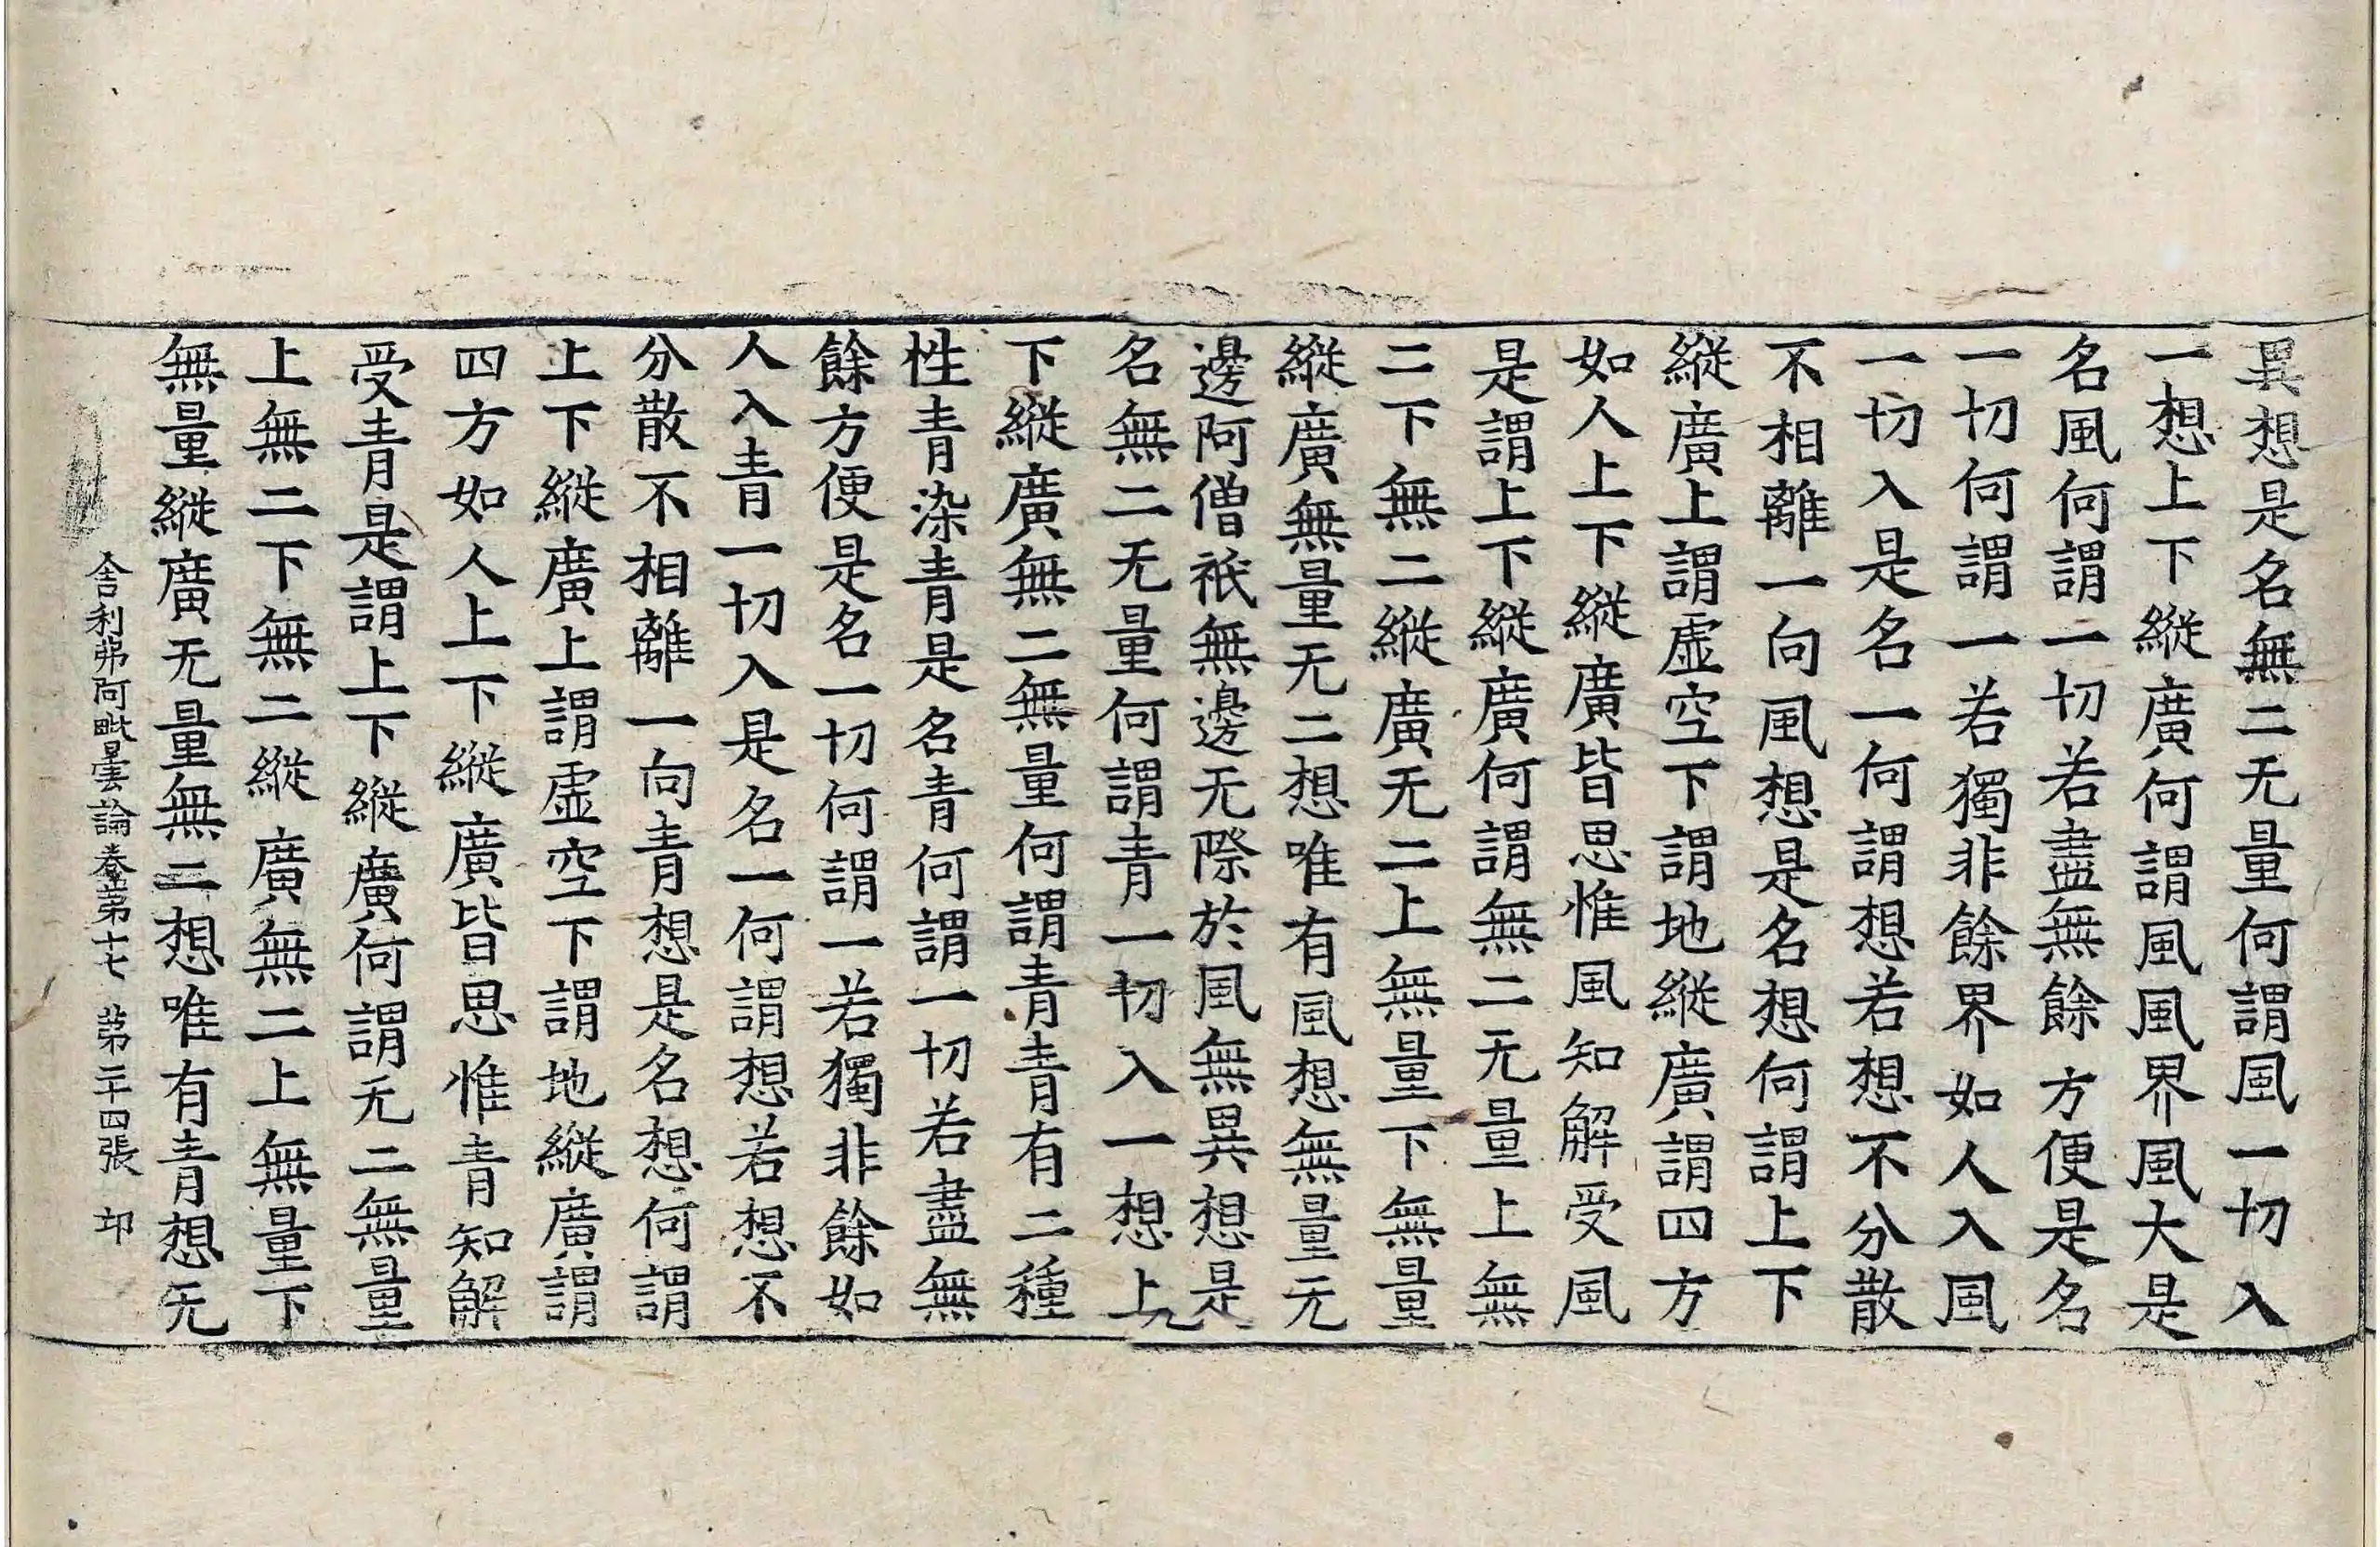 異想是名無二无量何謂風一切入
一想上下縱廣何謂風風界風大是
名風何謂一切若盡無餘方便是名
一切何謂一若獨非餘界如人入風
一切入是名一何謂想若想不分散
不相離一向風想是名想何謂上下
縱廣上謂虛空下謂地縱廣謂四方
如人上下縱廣皆思惟風知解受風
是謂上下縱廣何謂無二无量上無
二下無二縱廣无二上無量下無量
縱廣無量无二想唯有風想無量无
邊阿僧祇無邊无際於風無異想是
名無二无量何謂青一切入一想上
下縱廣無二無量何謂青青有二種
性青染青是名青何謂一切若盡無
餘方便是名一切何謂一若獨非餘如
人入青一切入是名一何謂想若想不
分散不相離一向青想是名想何謂
上下縱廣上謂虛空下謂地縱廣謂
四方如人上下縱廣皆思惟青知解
受青是謂上下縱廣何謂无二無量
上無二下無二縱廣無二上無量下
無量縱廣无量無二想唯有青想无
舍利弗阿毗曇論卷第十七 第二十四張 卬